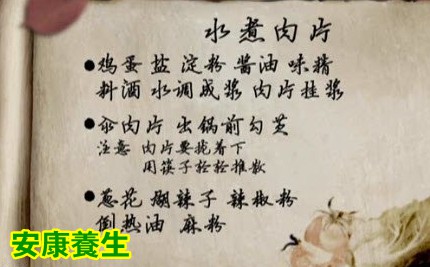 水煮肉片
●鸡蛋 盐 淀粉 酱油 味精
料酒 水调成浆 肉片挂浆
●汆肉片 出锅前勾芡
注意 肉片要拢着下
用筷子轻轻推散
●葱花 糊辣子 辣椒粉
倒热油 麻粉
安康養生